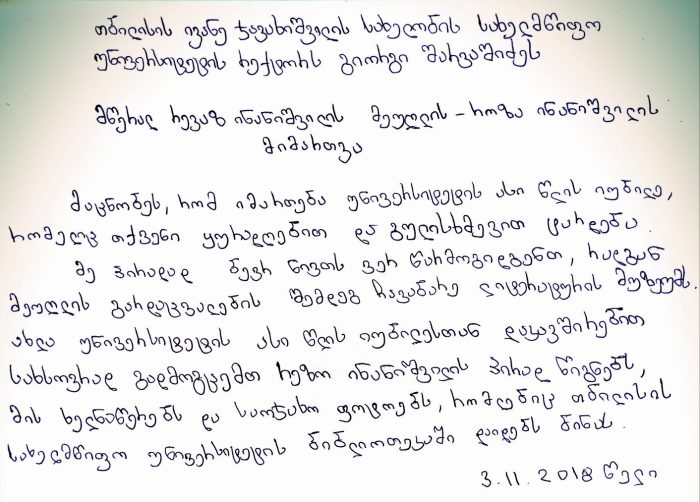 თბილისის ივანე ჯავახიშვილის სახელობის სახელმწიფო
უნივერსიტეტის რექტორს გიორგი შარვაშიძეს
მწერალ რევაზ ინანიშვილის მეუღლის - როზა ინანიშვილის
მიმართვა
მაცნობეს, რომ იმართება უნივერსიტეტის ასი წლის იუბილე,
რომელიც თქვენი ყურადღებით და გულისხმევით ტარდება.
მე პირადად ბევრ ნივთს ვერ წარმოგიდგენთ, რადგან
მეუღლის გარდაცვალების შემდეგ ჩავაბარე ლიტერატურის მუზეუმს.
ახლა უნივერსიტეტის ასი წლის იუბილესთან დაკავშირებით
სახსოვრად გადმოგცემთ რეზო ინანიშვილის პირად წიგნებს,
მის ხელნაწერებს და საოჯახო ფოტოებს, რომლებიც თბილისის
სახელმწიფო უნივერსიტეტის ბიბლიოთეკაში დაიდებს ბინას.
3.11.2018 წელი